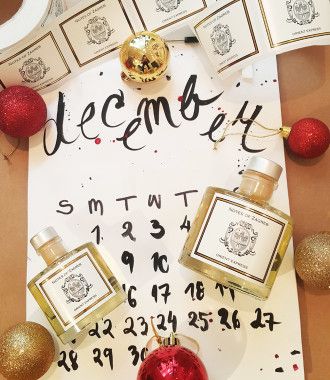 NOTES OF ZAGREB
ORIENT EXPRESS
december
S M T W T
1 2 3 4
9 10
16 17 18
22 23 24 25 26 27
28 29 30
NOTES OF ZAGREB
ORIENT EXPRESS
NOTES OF ZAGREB
ORIENT EXPRESS